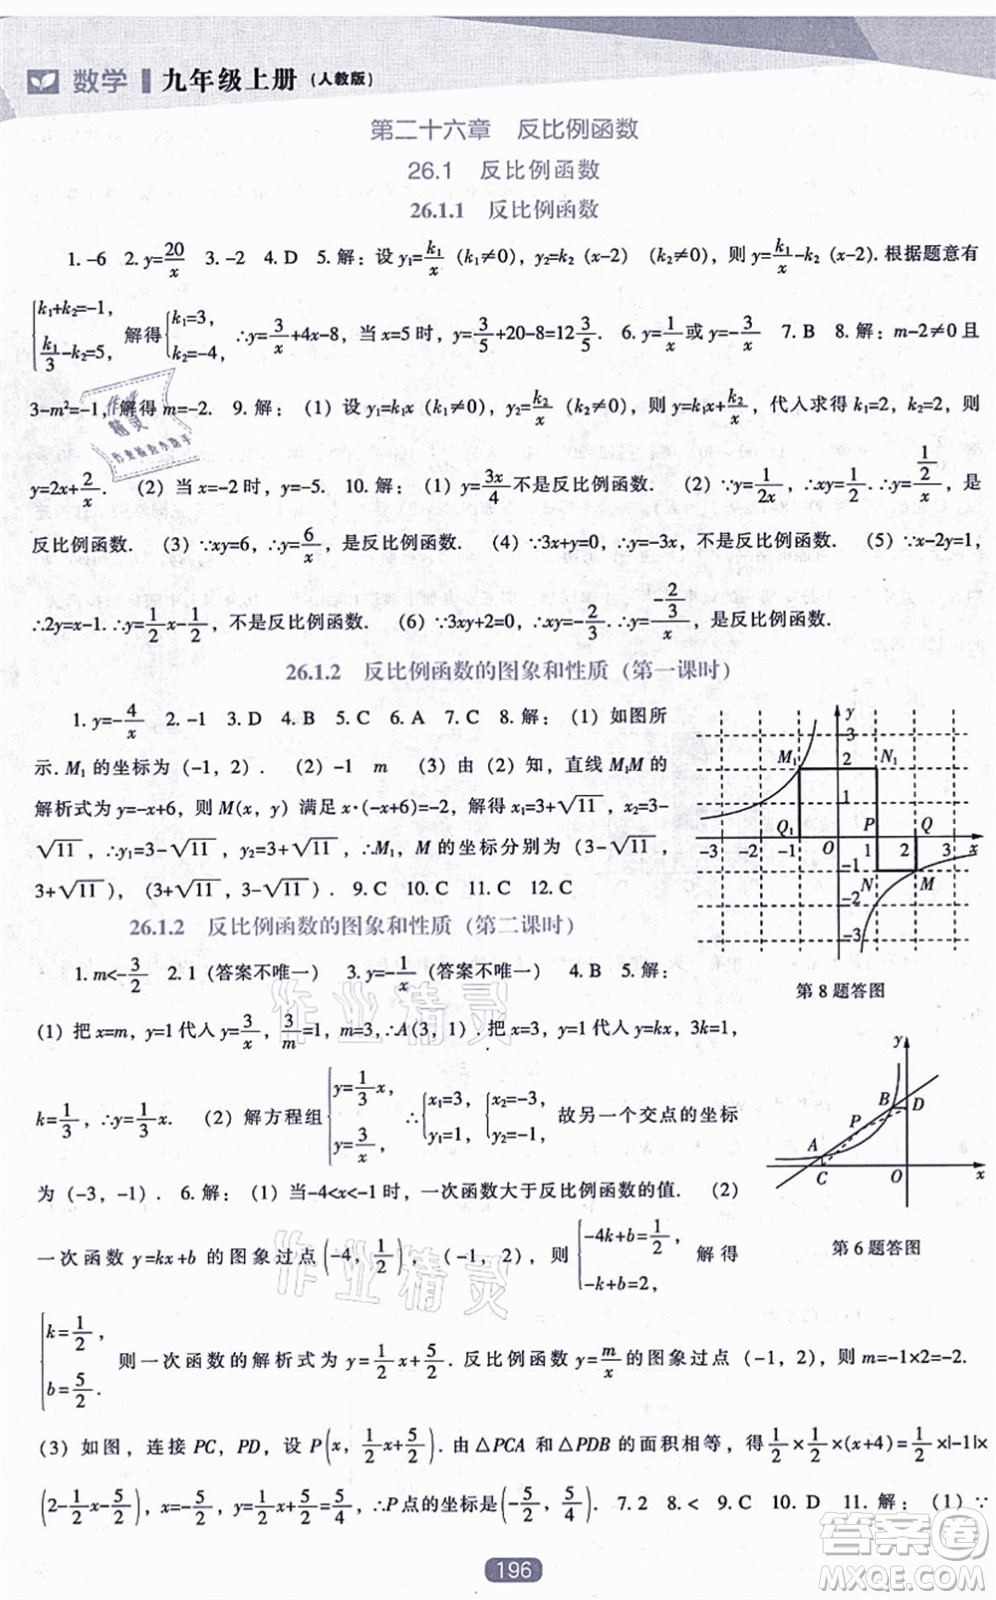 数学 九年级上册（人教版）
第二十六章 反比例函数
26.1 反比例函数
26.1.1 反比例函数
1. -6 2. y=20/x 3. -2 4. D 5. 解：设 y₁=k₁/x（k₁≠0），y₂=k₂（x-2）（k₂≠0），则 y=k₁/x-k₂（x-2）. 根据题意有
{k₁+k₂=-1, k₁/3-k₂=5, 解得{k₁=3, k₂=-4, ∴y=3/x+4x-8，当 x=5 时，y=3/5+20-8=12 3/5. 6. y=1/x或 y=-3/x 7. B 8. 解：m-2≠0 且
3-m²=-1，解得 m=-2. 9. 解：（1）设 y₁=k₁x（k₁≠0），y₂=k₂/x（k₂≠0），则 y=k₁x+k₂/x，代入求得 k₁=2，k₂=2，则
y=2x+2/x. （2）当 x=-2 时，y=-5. 10. 解：（1）y=3x/4 不是反比例函数. （2）∵y=1/2x，∴xy=1/2. ∴y=(1/2)/x，是
反比例函数. （3）∵xy=6，∴y=6/x，是反比例函数. （4）∵3x+y=0，∴y=-3x，不是反比例函数. （5）∵x-2y=1，
∴2y=x-1. ∴y=1/2x-1/2，不是反比例函数. （6）∵3xy+2=0，∴xy=-2/3. ∴y=(-2/3)/x，是反比例函数.
26.1.2 反比例函数的图象和性质（第一课时）
1. y=-4/x 2. -1 3. D 4. B 5. C 6. A 7. C 8. 解：（1）如图所
示. M₁的坐标为（-1，2）. （2）-1 m （3）由（2）知，直线 M₁M 的
解析式为 y=-x+6，则 M(x，y) 满足 x·(-x+6)=-2，解得 x₁=3+√11，x₂=3-
√11，∴y₁=3-√11，y₂=3+√11，∴M₁，M 的坐标分别为（3-√11，
3+√11），（3+√11，3-√11）. 9. C 10. C 11. C 12. C
26.1.2 反比例函数的图象和性质（第二课时）
1. m<-3/2 2. 1（答案不唯一） 3. y=-1/x（答案不唯一） 4. B 5. 解：
（1）把 x=m，y=1 代入 y=3/x，3/m=1，m=3，∴A（3，1）. 把 x=3，y=1 代入 y=kx，y=3k，
k=1/3，∴y=1/3x. （2）解方程组{y=1/3x, y=3/x, ∴{x₁=3, y₁=1, {x₂=-3, y₂=-1, 故另一个交点的坐标
为（-3，-1）. 6. 解：（1）当-4<x<-1 时，一次函数大于反比例函数的值. （2）
一次函数 y=kx+b 的图象过点（-4，1/2），（-1，2），则{-4k+b=1/2, -k+b=2, 解得
{k=1/2, b=5/2. 则一次函数的解析式为 y=1/2x+5/2. 反比例函数 y=m/x的图象过点（-1，2），则 m=-1×2=-2.
（3）如图，连接 PC，PD，设 P（x，1/2x+5/2）. 由△PCA 和△PDB 的面积相等，得1/2×1/2×(x+4)=1/2×|-1|×
（2-1/2x-5/2），x=-5/2，y=1/2x+5/2=5/4，∴P 点的坐标是（-5/2，5/4）. 7. 2 8. < 9. C 10. D 11. 解：（1）∵
y
3
M₁ 2 N₁
1
Q₁ P Q
-3 -2 -1 O 1 2 3 x
-1
N M
-2
-3
第 8 题答图
y
B D
P
A
C O x
第 6 题答图
196
作业精灵
作业精灵
作业精灵
答案圈
MXQE.COM